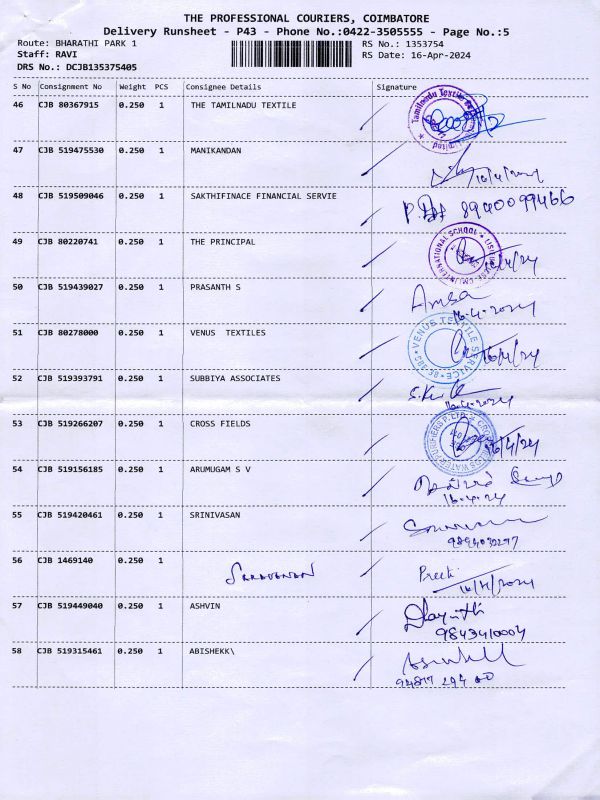 THE PROFESSIONAL COURIERS, COIMBATORE
Delivery Runsheet - P43 - Phone No.:0422-3505555 - Page No.:5
Route: BHARATHI PARK 1 RS No.: 1353754
Staff: RAVI RS Date: 16-Apr-2024
DRS No.: DCJB135375405
S No Consignment No Weight PCS Consignee Details Signature
46 CJB 80367915 0.250 1 THE TAMILNADU TEXTILE
47 CJB 519475530 0.250 1 MANIKANDAN
16/4/2024
48 CJB 519509046 0.250 1 SAKTHIFINACE FINANCIAL SERVIE
8940099466
49 CJB 80220741 0.250 1 THE PRINCIPAL
INTERNATIONAL SCHOOL
16/4/24
50 CJB 519439027 0.250 1 PRASANTH S
Amsa
16-4-2024
51 CJB 80278000 0.250 1 VENUS TEXTILES
VENUS TEXTILE SERVICE
16/4/24
52 CJB 519393791 0.250 1 SUBBIYA ASSOCIATES
16-4-2024
53 CJB 519266207 0.250 1 CROSS FIELDS
CROSS FIELDS WATER PURIFIERS P. LTD.
16/4/24
54 CJB 519156185 0.250 1 ARUMUGAM S V
16-4-24
55 CJB 519420461 0.250 1 SRINIVASAN
56 CJB 1469140 0.250 1 SARAVANAN Preeti
16/4/2024
57 CJB 519449040 0.250 1 ASHVIN
9843410004
58 CJB 519315461 0.250 1 ABISHEKK\